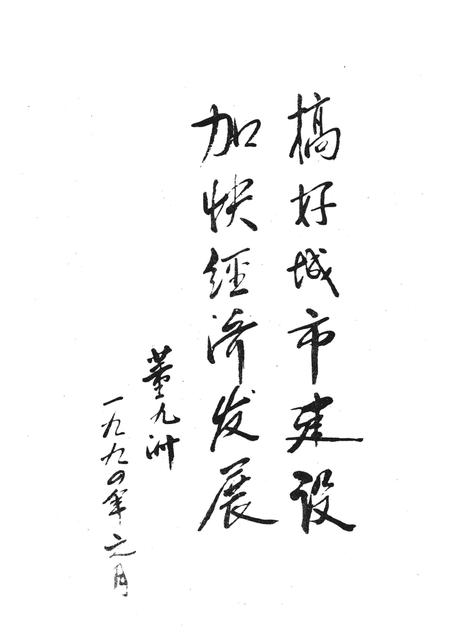 搞好城市建设
加快經济发展
董九洲
一九九四年元月